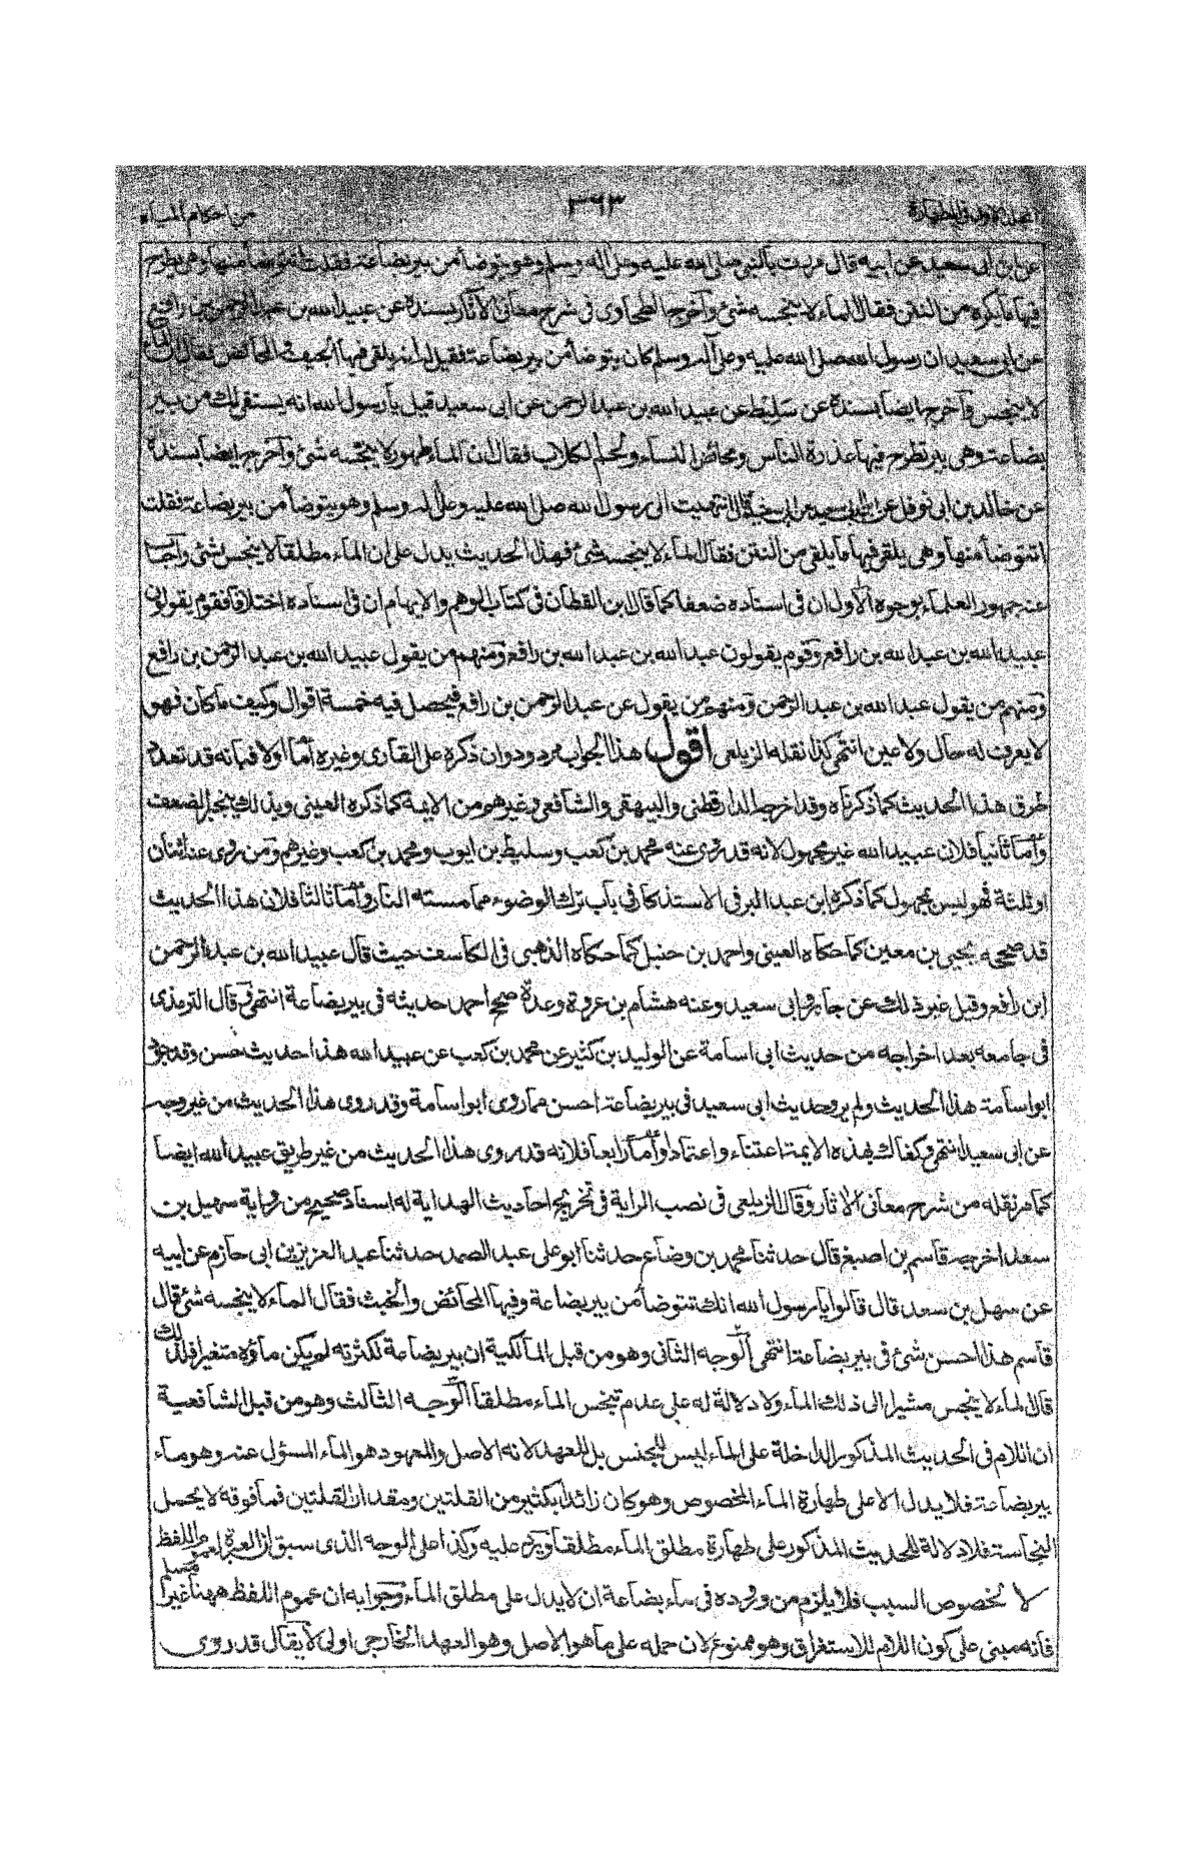 الفصل الاول في الطهارة ٣٦٣ من احكام المياه
عن ابن ابى سعيد عن ابيه قال مررت بالنبي صلى الله عليه وعلى آله وسلم وهو يتوضأ من بير بضاعة فقلت اتتوضأ منها وهى يطرح
فيها ما يكره من النتن فقال الماء لا ينجسه شئ وآخرج الطحاوى في شرح معاني الآثار بسنده عن عبيد الله بن عبد الرحمن بن رافع
عن ابي سعيد ان رسول الله صلى الله عليه وعلى آله وسلم كان يتوضأ من بير بضاعة فقيل له انه يلقى فيها الجيف والمحائض فقال ان الماء
لا ينجس وآخرج ايضا بسنده عن سليط عن عبيد الله بن عبد الرحمن عن ابى سعيد قيل يا رسول الله انه يستقى لك من بير
بضاعة وهى بير تطرح فيها عذرة الناس ومحائض النساء ولحم الكلاب فقال ان الماء طهور لا ينجسه شئ وآخرج ايضا بسنده
عن خالد بن ابى نوفل عن ابن ابى سعيد عن ابى سعيد قال انتهيت الى رسول الله صلى الله عليه وعلى آله وسلم وهو يتوضأ من بير بضاعة فقلت
اتتوضأ منها وهى يلقى فيها ما يلقى من النتن فقال الماء لا ينجسه شئ فهذا الحديث يدل على ان الماء مطلقا لا ينجس بشئ واجاب
عنه جمهور العلماء بوجوه الاول ان في اسناده ضعفا كما قال ابن القطان في كتاب الوهم والايهام ان في اسناده اختلافا فقوم يقولون
عبيد الله بن عبد الله بن رافع وقوم يقولون عبد الله بن عبد الله بن رافع ومنهم من يقول عبيد الله بن عبد الرحمن بن رافع
ومنهم من يقول عبد الله بن عبد الرحمن ومنهم من يقول عن عبد الرحمن بن رافع فيحصل فيه خمسة اقوال وكيف ما كان فهو
لا يعرف له حال ولا عين انتهى كذا نقله الزيلعى اقول هذا الجواب مردود وان ذكره على القارى وغيره اما اولا فبانه قد تعدد
طرق هذا الحديث كما ذكرناه وقد اخرجه الدارقطنى والبيهقى والشافعى وغيرهم من الايمة كما ذكره العينى وبذلك ينجبر الضعف
واما ثانيا فلان عبيد الله غير مجهول لانه قد روى عنه محمد بن كعب وسليط بن ايوب ومحمد بن كعب وغيرهم ومن روى عنه اثنان
او ثلثة فهو ليس بمجهول كما ذكره ابن عبد البر في الاستذكار في باب ترك الوضوء مما مسته النار واما ثالثا فلان هذا الحديث
قد صححه يحيى بن معين كما حكاه العينى واحمد بن حنبل كما حكاه الذهبى في الكاشف حيث قال عبيد الله بن عبد الرحمن
ابن رافع وقيل غير ذلك عن جابر وابى سعيد وعنه هشام بن عروة وعدة صحح احمد حديثه في بير بضاعة انتهى وقال الترمذى
في جامعه بعد اخراجه من حديث ابى اسامة عن الوليد بن كثير عن محمد بن كعب عن عبيد الله هذا حديث حسن وقد جود
ابو اسامة هذا الحديث ولم يرو حديث ابى سعيد في بير بضاعة احسن مما روى ابو اسامة وقد روى هذا الحديث من غير وجه
عن ابى سعيد انتهى وكفاك بهذه الايمة اعتناء واعتمادا واما رابعا فلانه قد روى هذا الحديث من غير طريق عبيد الله ايضا
كما مر نقله من شرح معانى الاثار وقال الزيلعى في نصب الراية في تخريج احاديث الهداية له اسناد صحيح من رواية سهيل بن
سعد اخرجه قاسم بن اصبغ قال حدثنا محمد بن وضاع حدثنا ابو على عبد الصمد حدثنا عبد العزيز بن ابى حازم عن ابيه
عن سهل بن سعد قال قالوا يا رسول الله انك تتوضأ من بير بضاعة وفيها المحائض والخبث فقال الماء لا ينجسه شئ قال
قاسم هذا احسن شئ في بير بضاعة انتهى الوجه الثانى وهو من قبل المالكية ان بير بضاعة لكثرته لم يكن ماؤه متغيرا فلذلك
قال الماء لا ينجس مشيرا الى ذلك الماء ولا دلالة له على عدم تنجس الماء مطلقا الوجه الثالث وهو من قبل الشافعية
ان اللام في الحديث المذكور الداخلة على الماء ليس للجنس بل للعهد لانه الاصل والمعهود هو الماء المسؤل عنه وهو ماء
بير بضاعة فلا يدل الا على طهارة الماء المخصوص وهو كان زائدا بكثير من القلتين ومقدار القلتين فما فوقه لا يحمل
النجاسة فلا دلالة للحديث المذكور على طهارة مطلق الماء مطلقا ويرد عليه وكذا على الوجه الذى سبق ان العبرة لعموم اللفظ
لا لخصوص السبب فلا يلزم من وروده في ماء بضاعة ان لا يدل على مطلق الماء وجوابه ان عموم اللفظ ههنا غير مسلم
فانه مبنى على كون اللام للاستغراق وهو ممنوع لان حمله على ما هو الاصل وهو العهد الخارجى اولى لا يقال قد روى